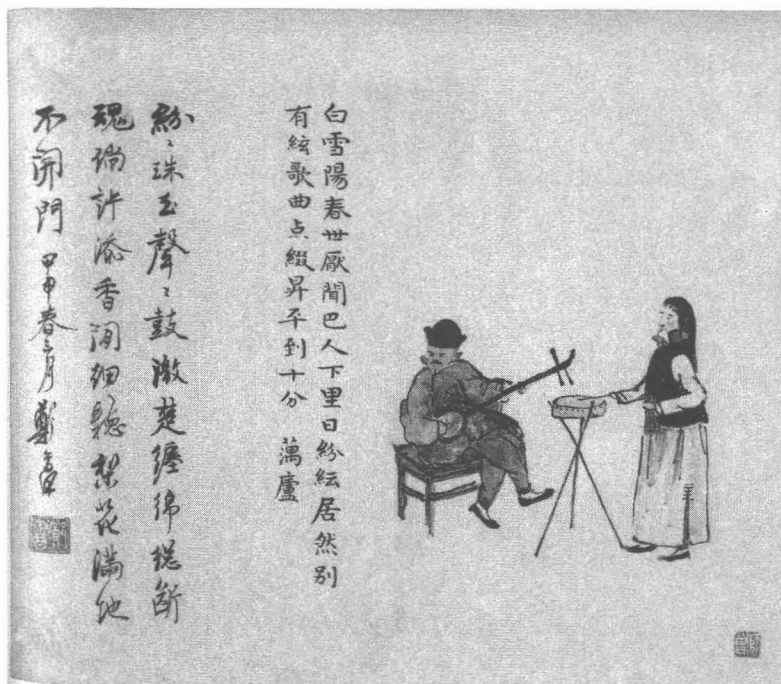 白雪陽春世厭聞巴人下里日紛紜居然別
有絃歌曲点綴昇平到十分 廬
紛〻珠玉聲〻鼓激楚纏綿総斷
魂倘許添香細聽梨花滿地
不開門 甲申春三月鄭